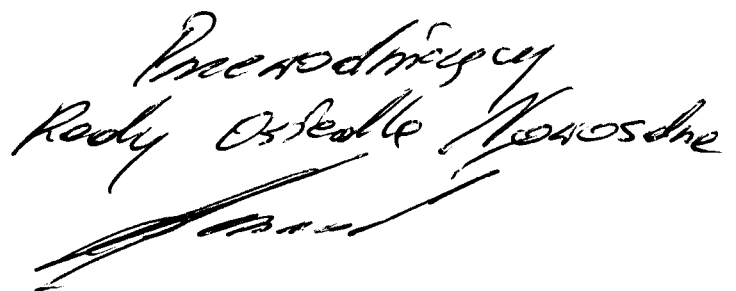 Przewodniczący
Rady Osiedla Nowosolna